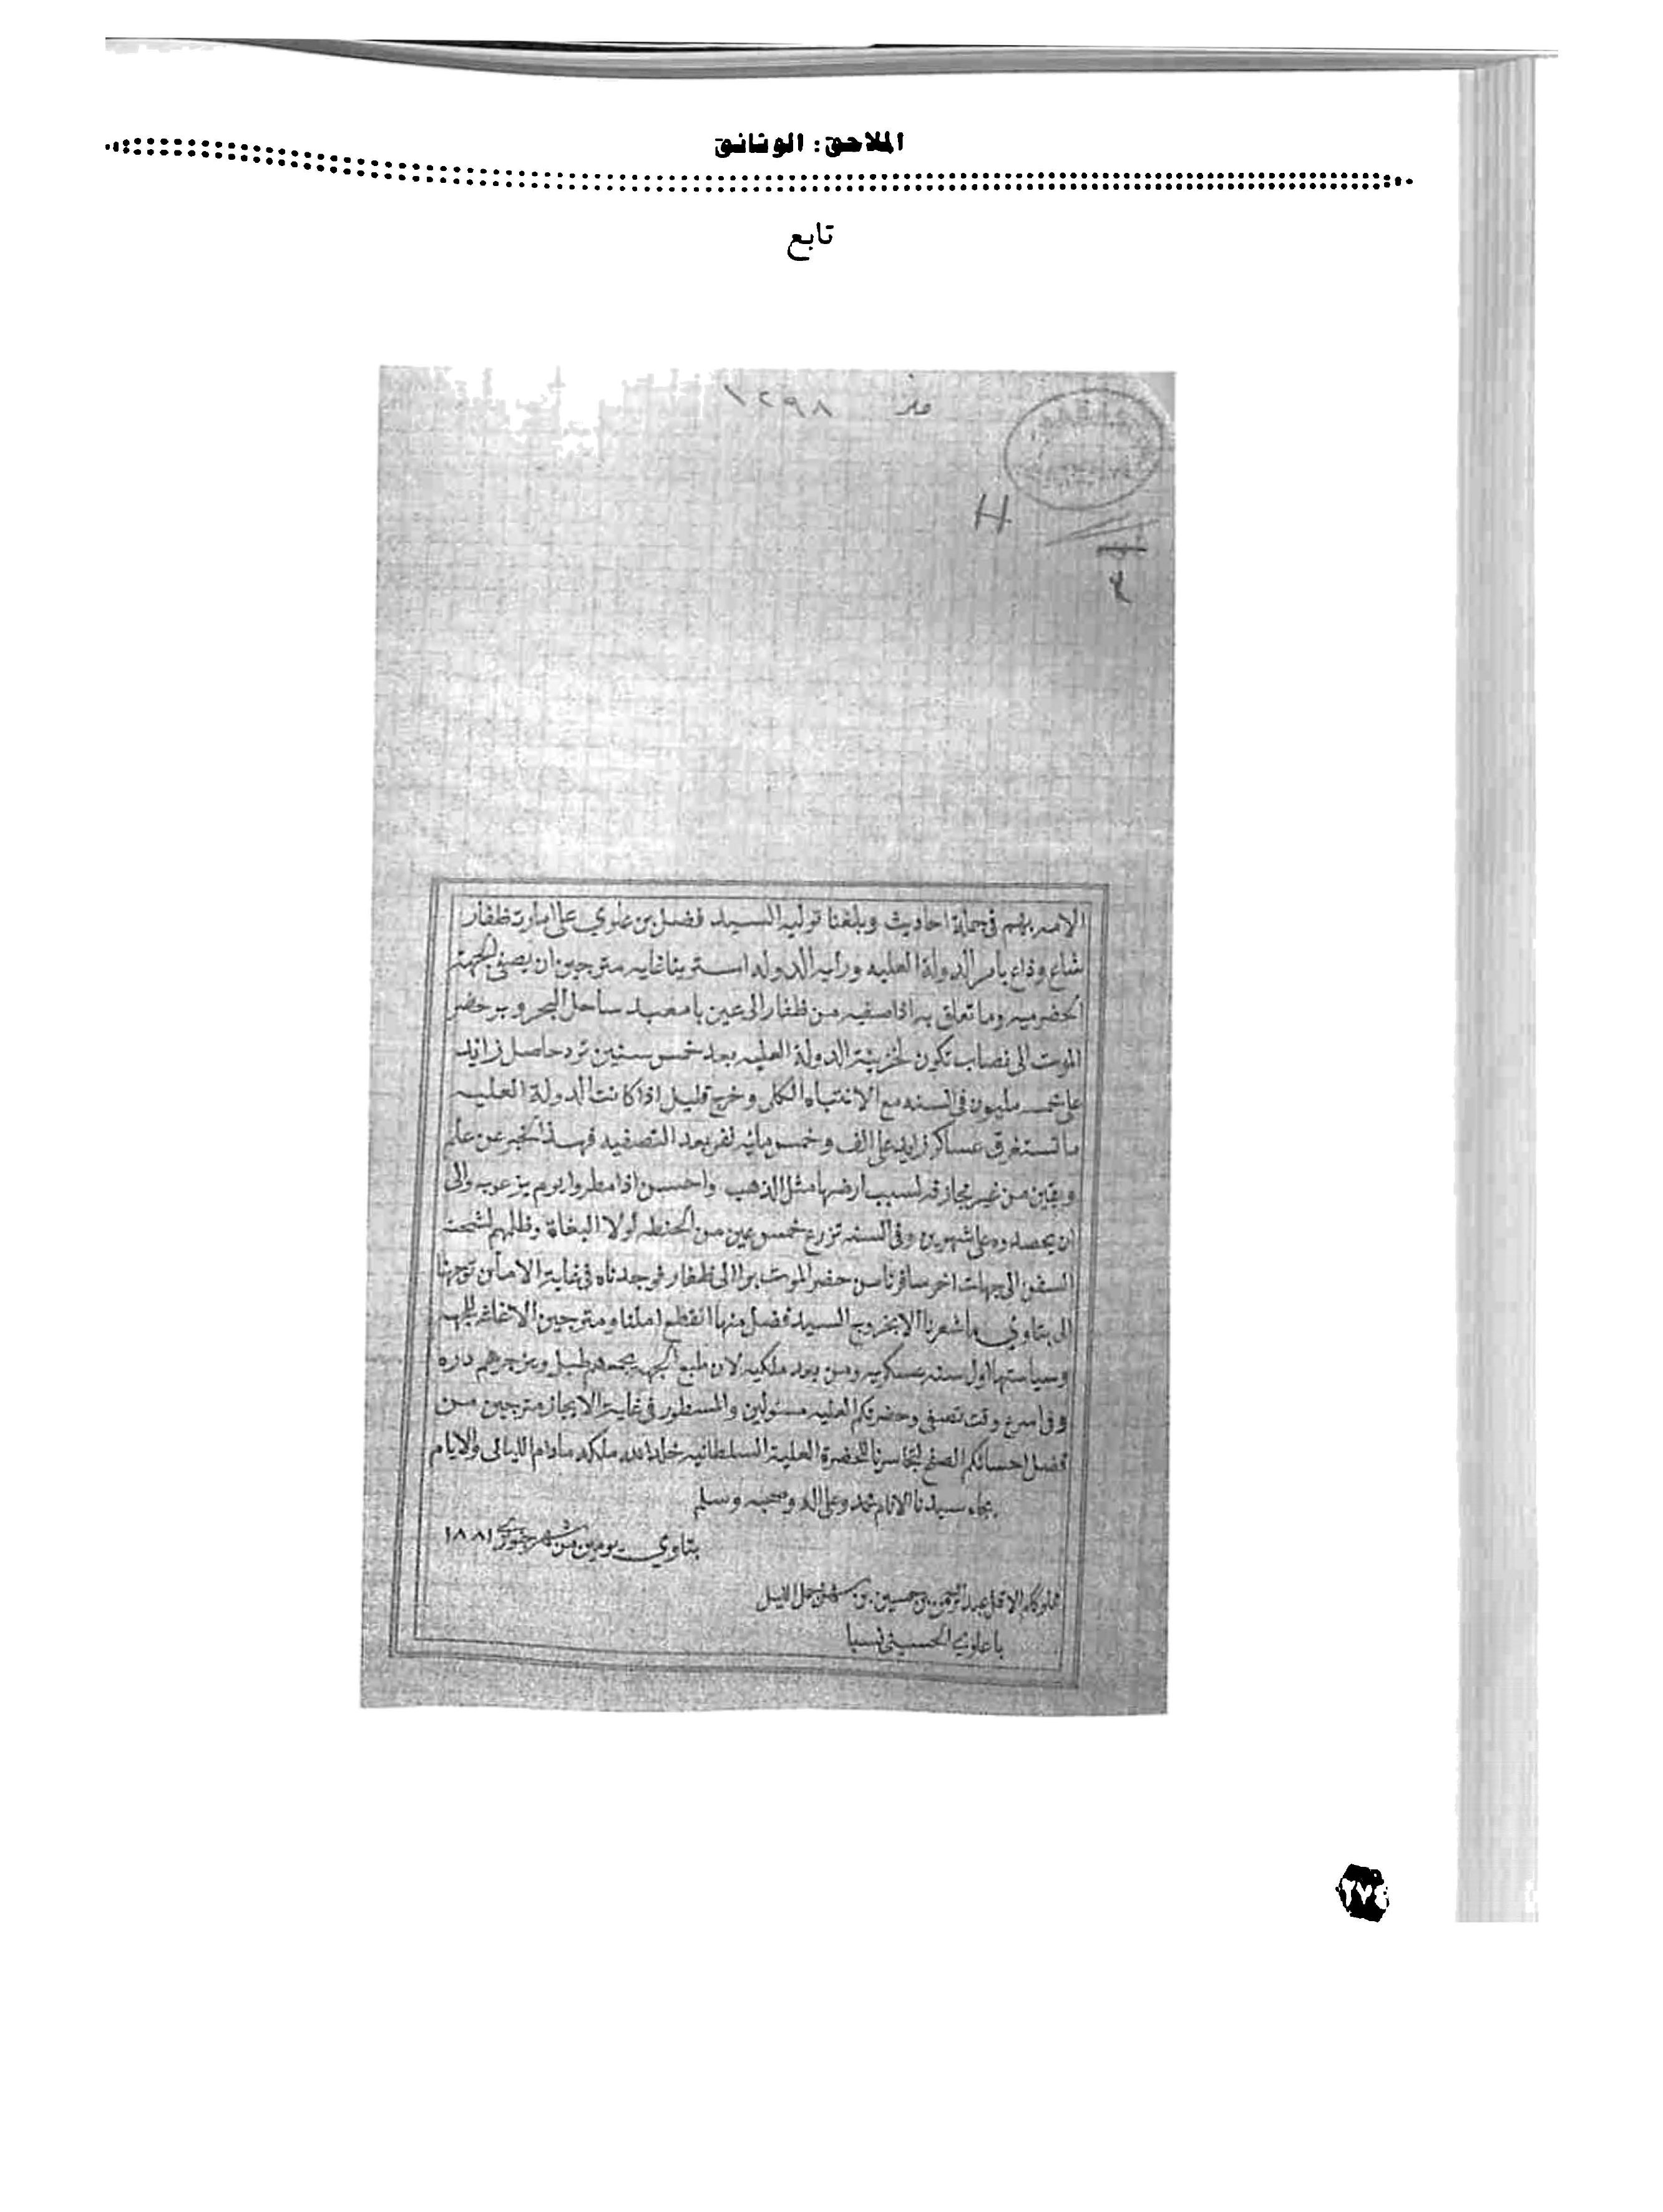 الملاحق: الوثائق
تابع
١٢٩٨
H
٢
الامه بهم في جملة احاديث وبلغنا توليه السيد فضل بن علوي على امارت ظفار
شاع وذاع بامر الدولة العليه ورايه الدوله استرينا غايه مترجين ان يصفي الجهة
الحضرميه وما تعلق به اذا صفيه من ظفار الى عين بامعبد ساحل البحر وبر حضر
الموت الى نصاب تكون لخزينة الدولة العليه بعد خمس سنين ترد حاصل زايد
على خمسه مليون في السنه مع الانتباه الكلي وخرج قليل اذا كانت الدولة العليه
ما تستغرق عساكر زايد على الف وخمس مايه نفر بعد التصفيه فهذا الخبر عن علم
ويقين من غير مجازفه لسبب ارضها مثل الذهب واحسن اذا مطروا يوم يزعوبه والى
ان يحصدوه على شهرين وفي السنه تزرع خمس من الحنطه لولا البغاة وظلمهم لشحت
السفن الى جهات اخر سافرنا من حضر الموت برا الى ظفار فوجدناه في غاية الامان توجهنا
الى بتاوي ما شعرنا الا بخروج السيد فضل منها انقطع املنا ومترجين الاغاثه للجهه
وسياستها اول سنه عسكريه ومن بعد ملكيه لان طبع الجهه يجمعهم طبل ويزجرهم داره
وفي اسرع وقت تصفى وحضرتكم العليه مسئولين والمسطور في غاية الايجاز مترجين من
فضل احسانكم الصفح لتجاسرنا للحضرة العلية السلطانيه خلد الله ملكه مادام الليالي والايام
بجاه سيدنا الانام محمد وعلى اله وصحبه وسلم
بتاوي يومين من شهر جنوري ١٨٨١
مملوككم الاقل عبد الرحمن بن حسين بن سهل جمل الليل
باعلوي الحسيني نسبا
٦٧٤